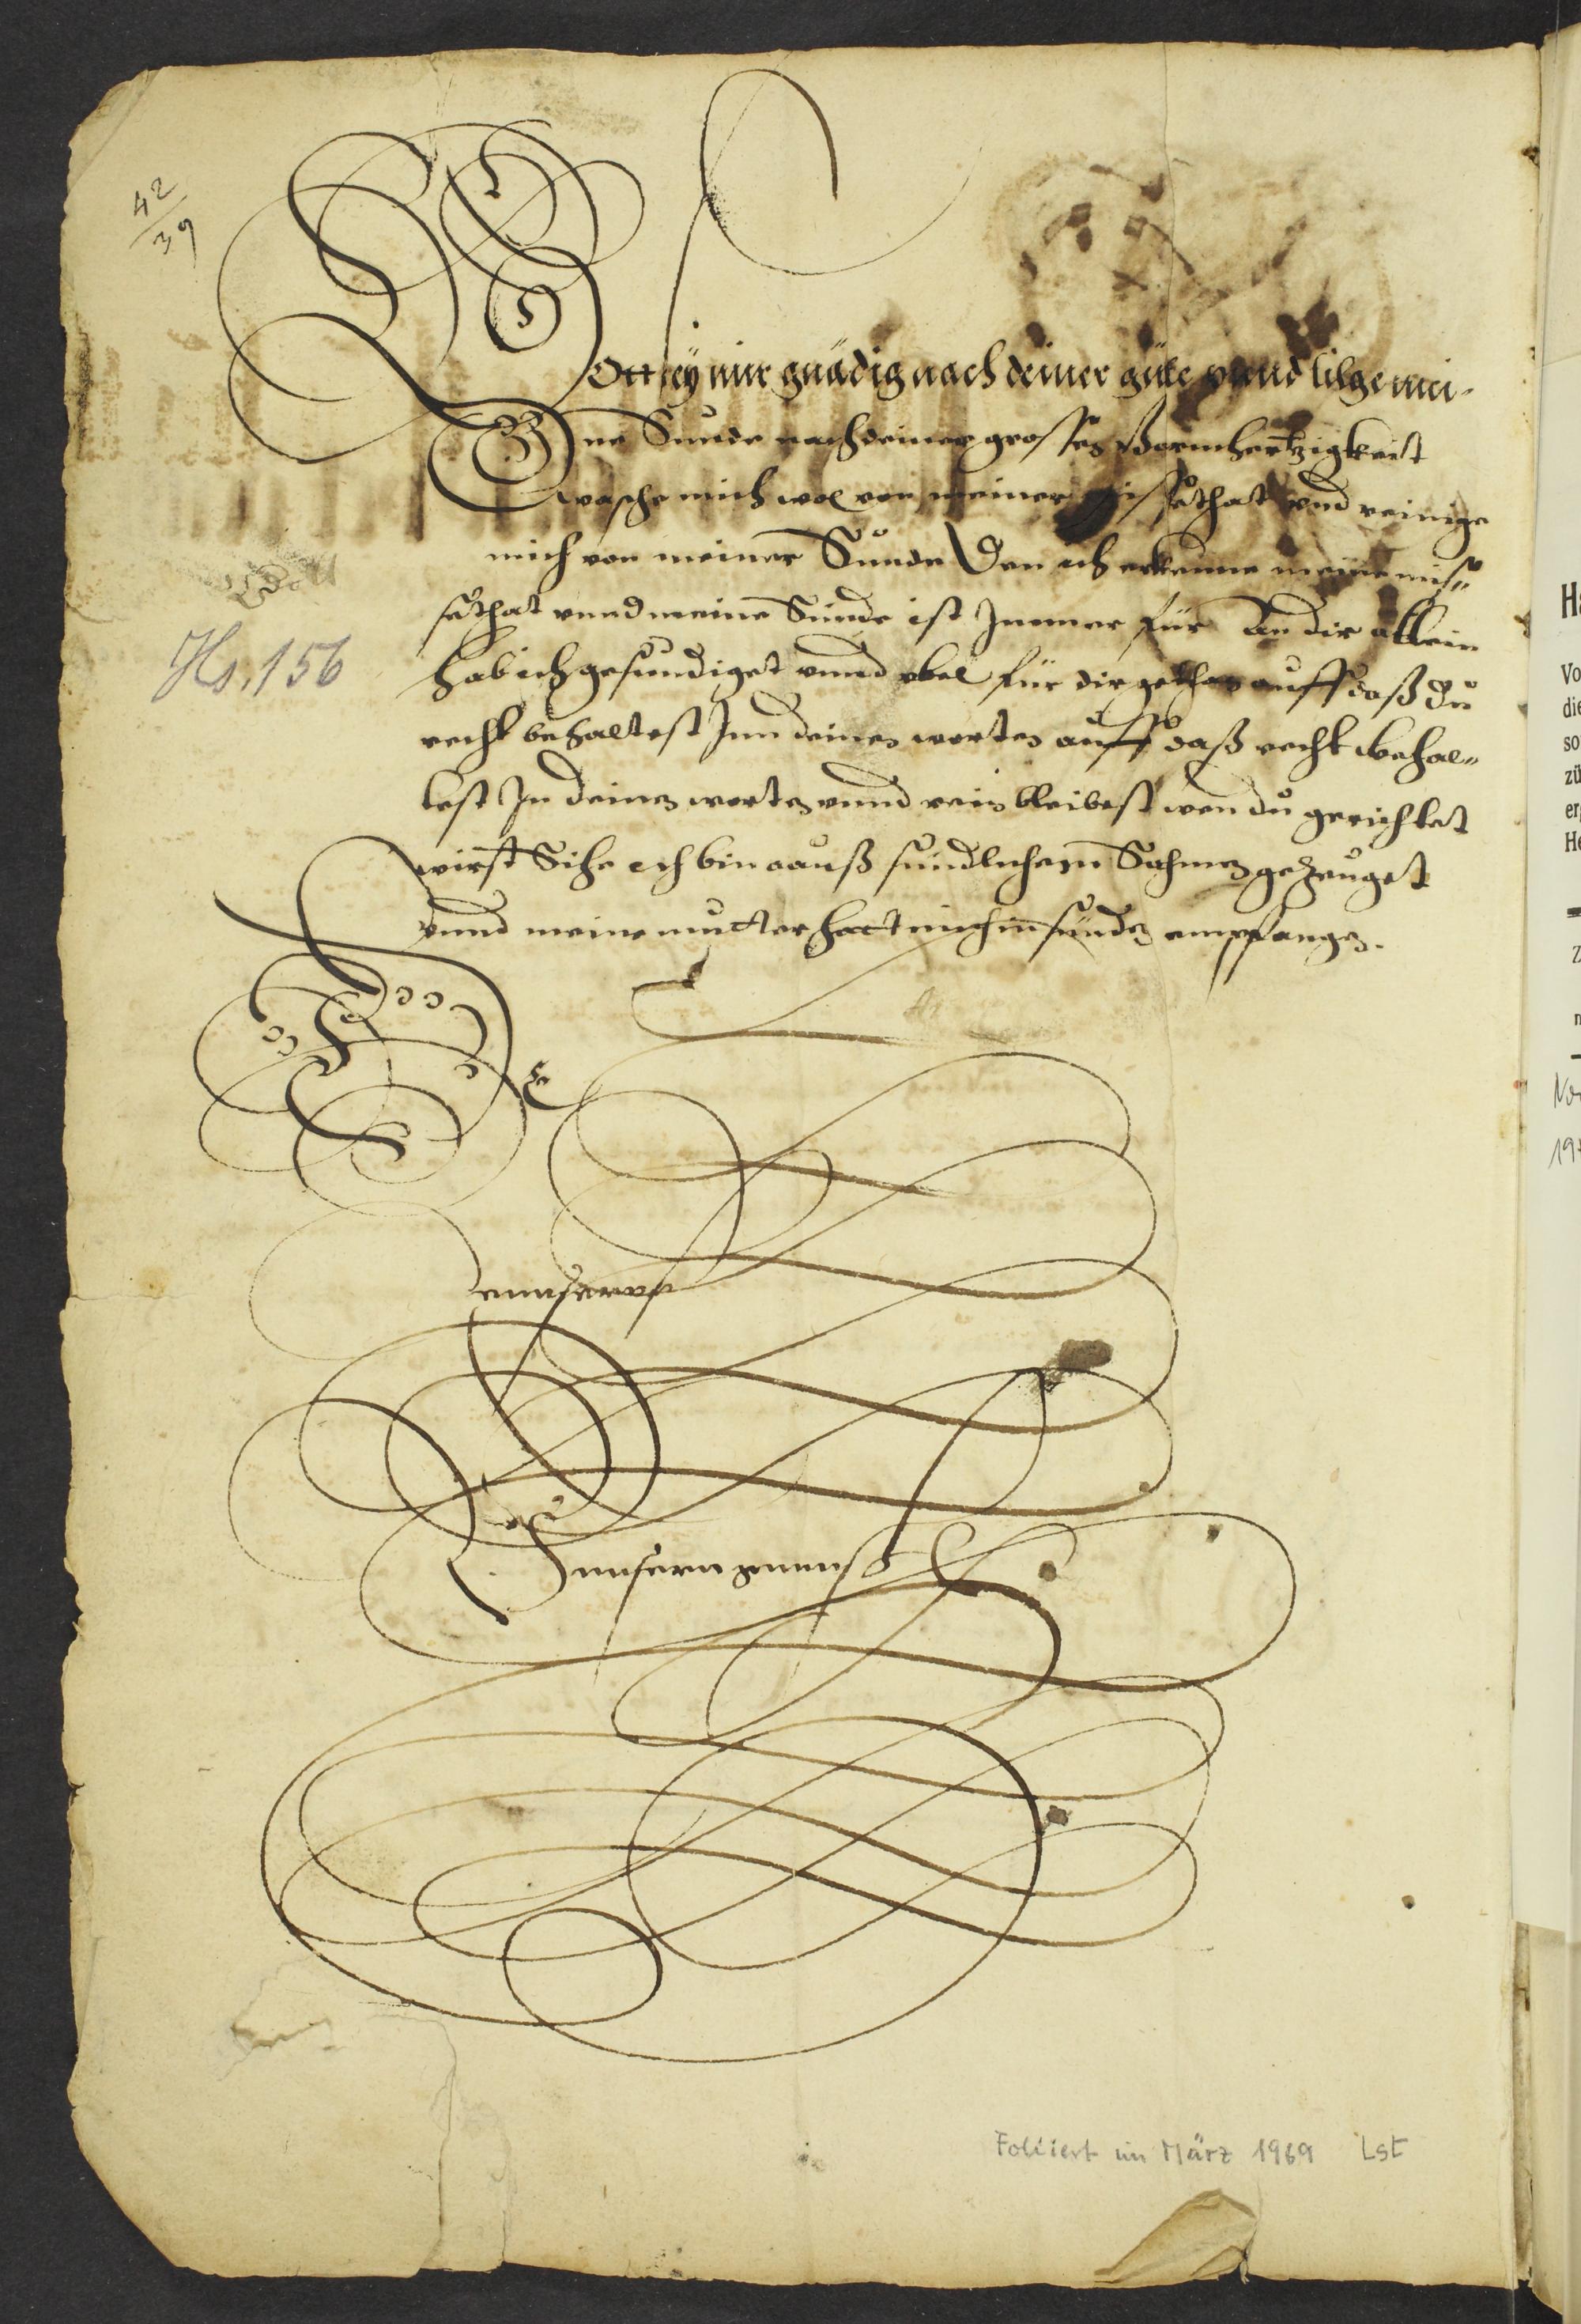 42
39
GOtt sey mir gnädig nach deiner güte vnnd tilge mei-
ne Sunde nach deiner grossen Barmhertzigkeit
wasche mich wol von meiner missethat vnd reinige
mich von meiner Sunde Den ich erkenne meine mis-
sethat vnnd meine Sünde ist Immer für An dir allein
Hs. 156
hab ich gesundiget vnnd vbel für dir gethan auff daß du
recht behaltest Inn deinen worten auff daß recht behal-
test In deinen worten vnnd rein bleibest wen du gerichtet
wirst Sihe ich bin aauß sündlichem Sahmen gezeuget
vnnd meine mutter hatt mich in sünden empfangen.
Foliiert im März 1969 Lst